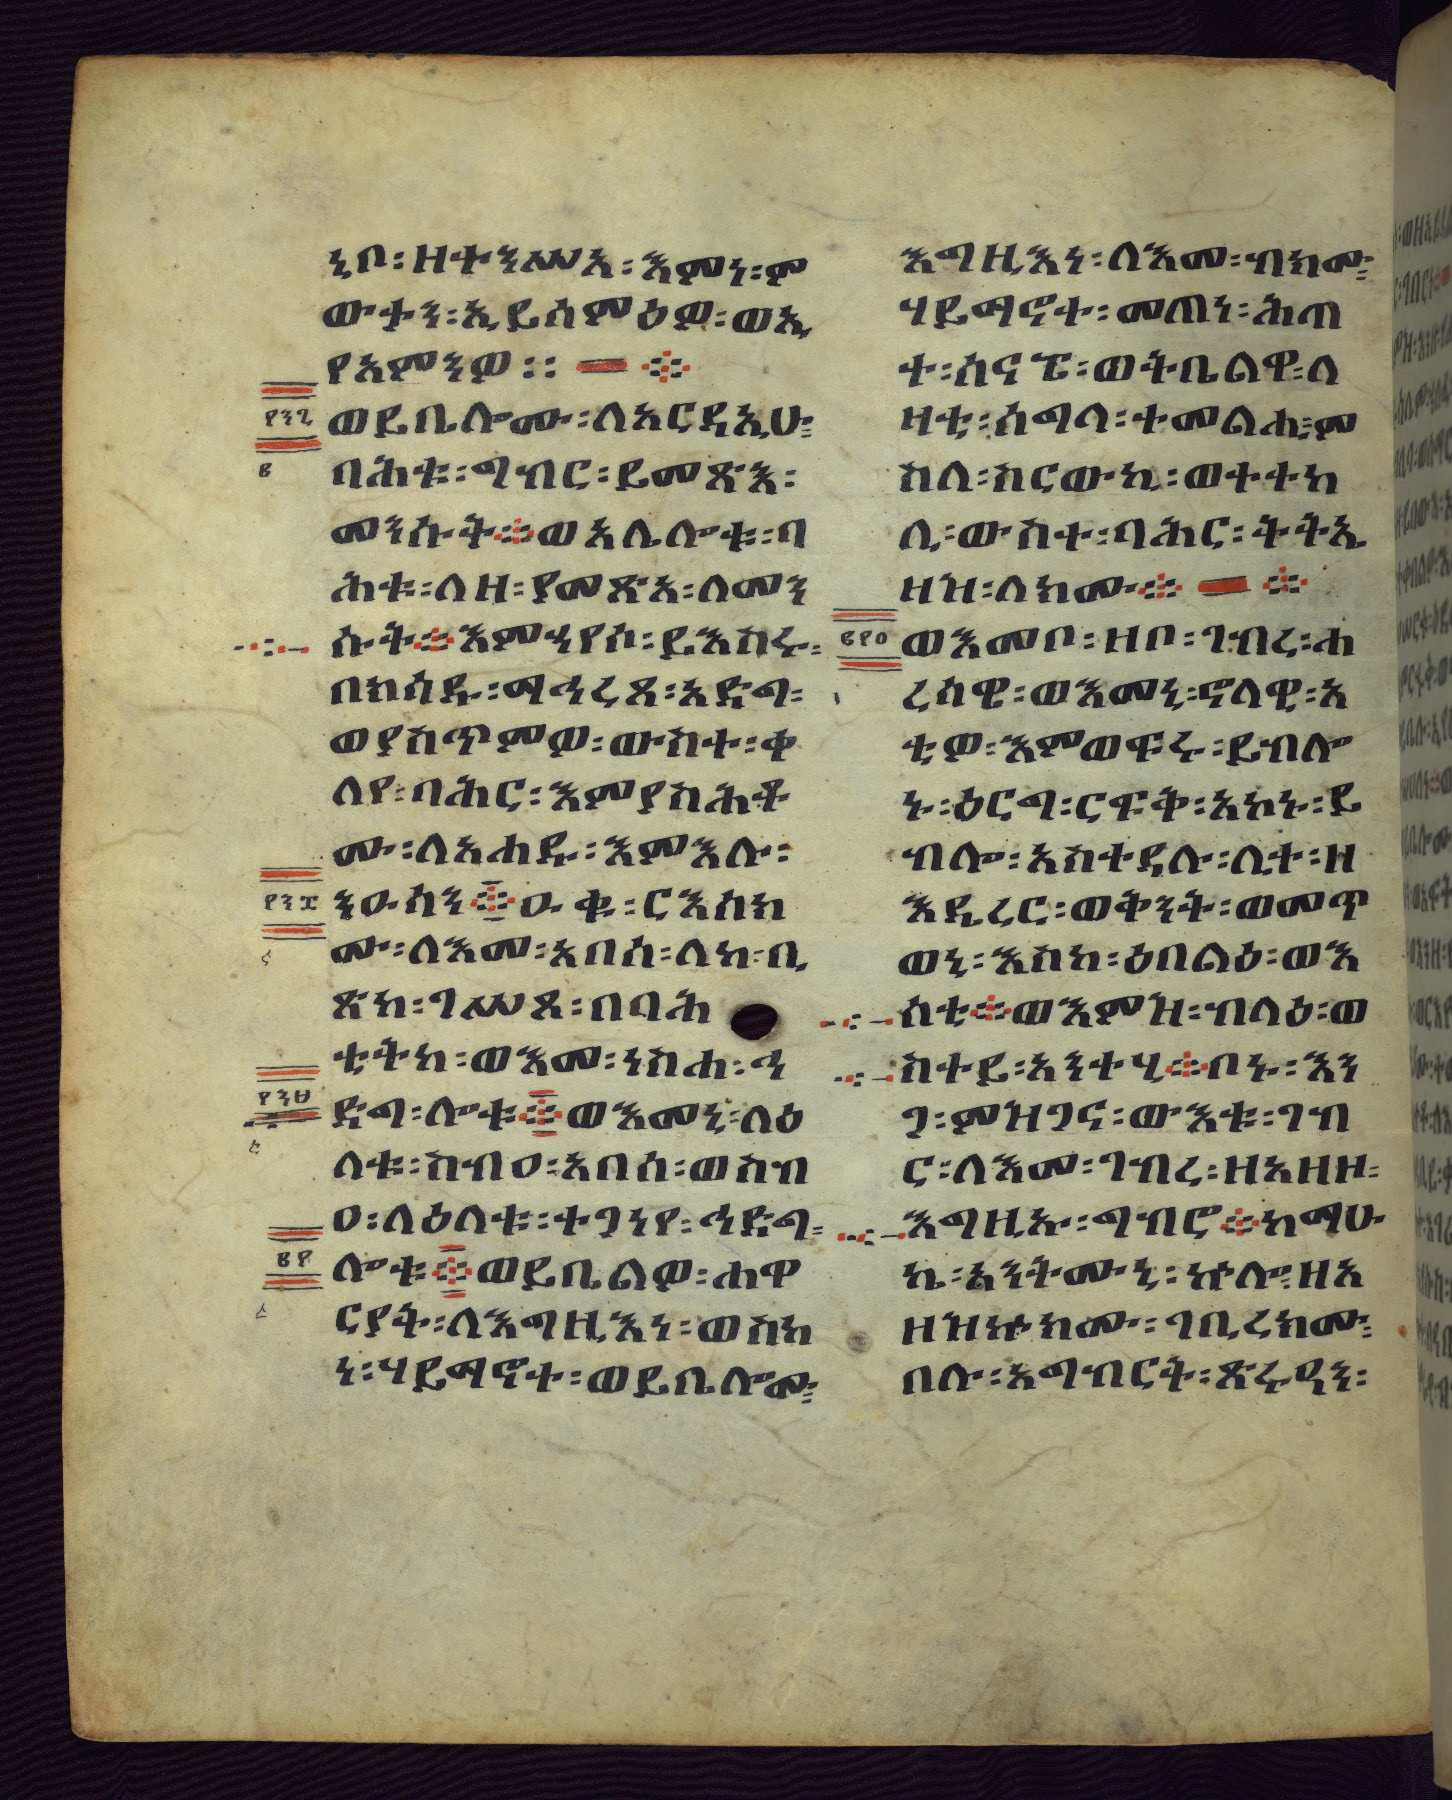 ኒቦ፡ዘተንሥአ፡እምነ፡ም
ውታን፡ኢይሰምዕዎ፡ወኢ
የአምንዎ፡፡
፻፺፯
፪
ወይቤሎሙ፡ለአርዳኢሁ፡
ባሕቱ፡ግብር፡ይመጽእ፡
መንሱት፡ወአሌሎቱ፡ባ
ሕቱ፡ለዘ፡ያመጽእ፡ለመን
ሱት፡እምኀየሰ፡ይእስሩ፡
በክሳዱ፡ማኅረጸ፡አድግ፡
ወያስጥምዎ፡ውስተ፡ቀ
ላየ፡ባሕር፡እምያስሕቶ
ሙ፡ለአሐዱ፡እምእሉ፡
፻፺፰
ንዑሳን፡ዑቁ፡ርእሰክ
ሙ፡ለእመ፡አበሰ፡ለከ፡ቢ
ጽከ፡ገሥጾ፡በባሕ
ቲትከ፡ወእመ፡ነስሐ፡ኅ
፻፺፱
ድግ፡ሎቱ፡ወእመኒ፡ለዕ
ለቱ፡ስብዐ፡አበሰ፡ወስብ
ዐ፡ለዕለቱ፡ተጋነየ፡ኅድግ፡
፪፻
ሎቱ፡ወይቤልዎ፡ሐዋ
ርያት፡ለእግዚእነ፡ወስከ
ነ፡ሃይማኖተ፡ወይቤሎሙ፡
እግዚእነ፡ለእመ፡ብክሙ፡
ሃይማኖተ፡መጠነ፡ሕጠ
ተ፡ሰናፔ፡ወትቤልዋ፡ለ
ዛቲ፡ሰግላ፡ተመልሒ፡ም
ስለ፡ስርውኪ፡ወተተከ
ሊ፡ውስተ፡ባሕር፡ትትኤ
ዘዝ፡ለክሙ
፪፻፩
ወእመቦ፡ዘቦ፡ገብረ፡ሐ
ረሳዌ፡ወእመኒ፡ኖላዊ፡አ
ቲዎ፡እምወፍሩ፡ይብሎ
ኑ፡ዕርግ፡ርፍቅ፡አኮኑ፡ይ
ብሎ፡አስተዳሉ፡ሊተ፡ዘ
እዴረር፡ወቅንት፡ወመጥ
ወኒ፡እስከ፡ዕበልዕ፡ወእ
ሰቲ፡ወእምዝ፡ብላዕ፡ወ
ስተይ፡አንተሂ፡ቦኑ፡እን
ጋ፡ምዝጋና፡ውእቱ፡ገብ
ር፡ለእመ፡ገብረ፡ዘአዘዞ፡
እግዚኡ፡ግብሮ፡ከማሁ
ኬ፡አንትሙኒ፡ኵሎ፡ዘአ
ዘዝኩክሙ፡ገቢረክሙ፡
በሉ፡አግብርት፡ጽሩዓን፡